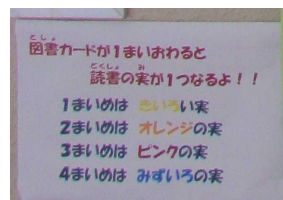 図書カードが1まいおわると
読書の実が1つなるよ！！
1まいめは きいろい実
2まいめは オレンジの実
3まいめは ピンクの実
4まいめは みずいろの実